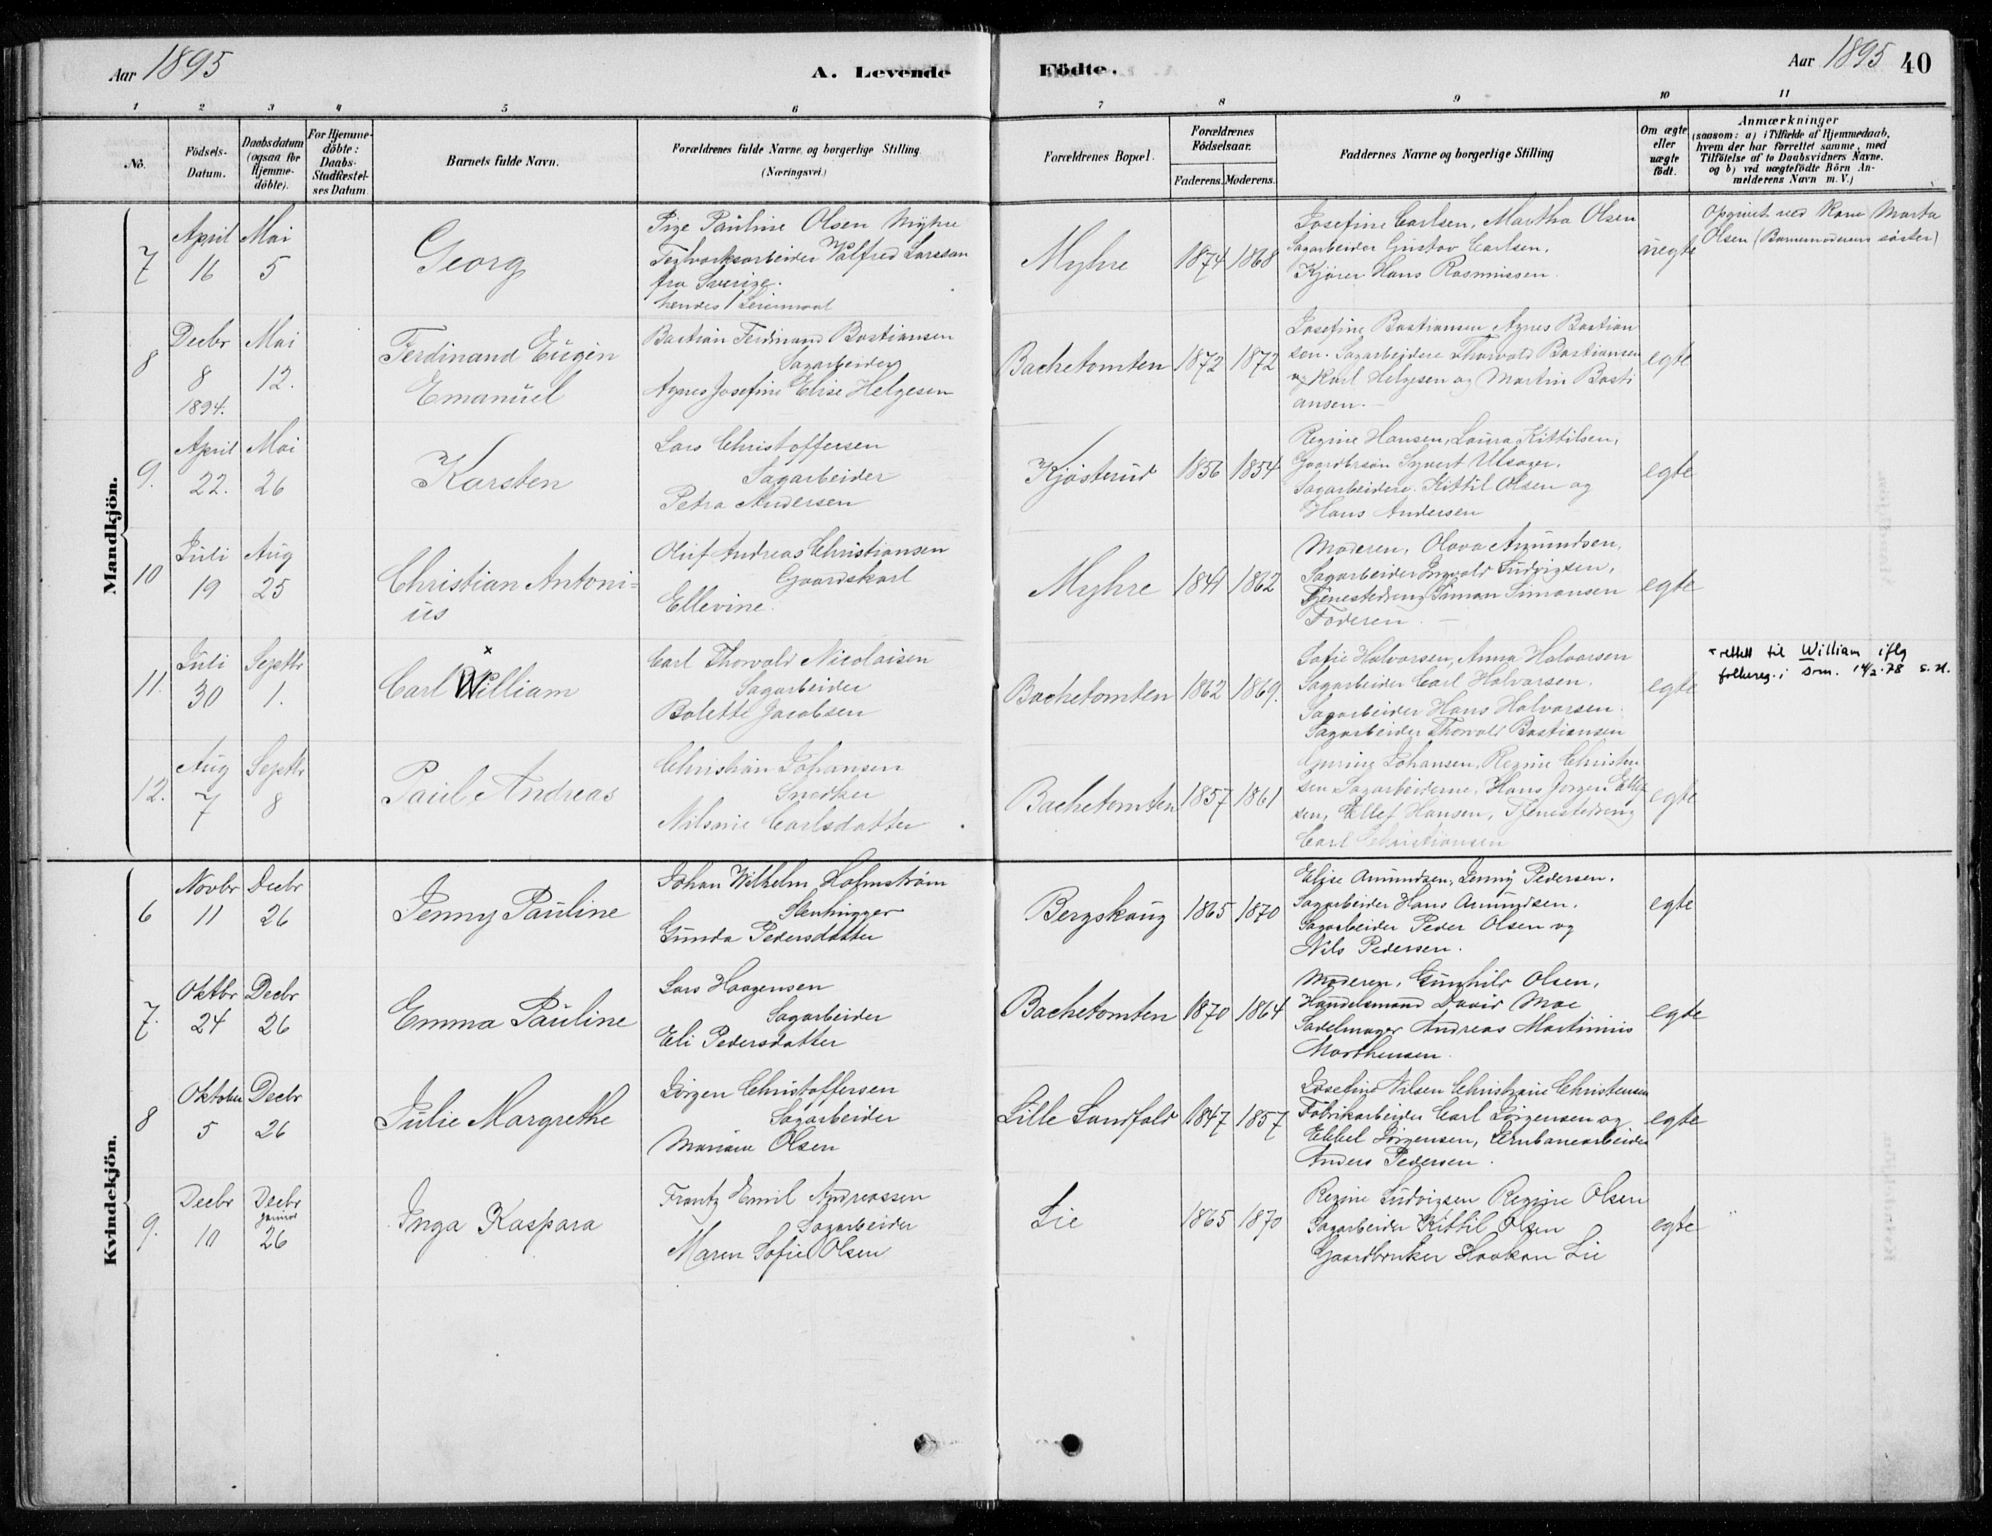 Aar 1895
A. Levende
Födte.
Aar 1895
40
1
2
3
4
5
6
7
8
9
10
11
No.
Födsels-
Datum.
Daabsdatum
(ogsaa for
Hjemme-
döbte).
For Hjemme-
döbte:
Daabs-
Stadfæstel-
ses Datum
Barnets fulde Navn.
Forældrenes fulde Navne og borgerlige Stilling
(Næringsvei.)
Forældrenes Bopæl.
Forældrenes
Födselsaar.
Faderens.
Moderens.
Faddernes Navne og borgerlige Stilling
Om ægte
eller
uægte
födt.
Anmærkninger
(saasom: a) i Tilfælde af Hjemmedaab,
hvem der har forrettet samme, med
Tilföielse af to Daabsvidners Navne.
og b) ved uægtefödte Börn An-
melderens Navn m. V.)
Mandkjön.
7
April
16
Mai
5
Georg
Pige Pauline Olsen Myhre
Teglværksarbeider Valfred Larsson
fra Sverige.
hendes 1 Leiermaal
Myhre
1874
1868
Josefine Carlsen, Martha Olsen
Sagarbeider Gustav Carlsen,
Kjører Hans Rasmussen.
uegte
Opgivet ved Kone Marta
Olsen (Barnemoderens søster)
8
Decbr
8
1894.
Mai
12.
Ferdinand Eugen
Emanuel
Bastian Ferdinand Bastiansen
Sagarbeider
Agnes Josefine Elise Helgesen
Bachetomten
1872
1872
Josefine Bastiansen Agnes Bastian
sen. Sagarbeidere Thorvald Bastiansen
og Karl Helgesen og Martin Basti
ansen.
egte
9.
April
22.
Mai
26
Karsten
Lars Christoffersen
Sagarbeider
Petra Andersen
Kjøsterud
1856
1854
Regine Hansen, Laura Kittilsen,
Sagarbeidere Kittil Olsen og
Hans Andersen
egte
10
Juli
19
Aug
25
Christian Antoni-
us
Oluf Andreas Christiansen
Gaardskarl
Ellevine.
Myhre
1841
1862
Moderen, Olava Amundsen,
Sagarbeider Ingvald Ludvigsen,
Tjenestedreng Simon Simonsen
Faderen.
egte
11.
Juli
30
Septbr
1.
x
Carl William
Carl Thorvald Nicolaisen
Sagarbeider
Bolette Jacobsen
Bachetomten
1862
1869.
Sofie Halvorsen, Anna Halvorsen
Sagarbeider Carl Halvorsen.
Sagarbeider Hans Halvorsen.
Sagarbeider Thorvald Bastiansen
egte
x rettet til William iflg
folkereg. i Drm. 14/2-78 S.H.
12.
Aug
7
Septbr
8
Paul Andreas
Christian Johansen
Snedker
Nilsine Carlsdatter
Bachetomten
1857
1861
Guring Johansen, Regine Christen
sen Sagarbeiderne, Hans Jørgen Ellef
sen, Ellef Hansen, Tjenestedreng
Carl Christiansen
egte
Kvindekjön.
6
Novbr
11
Decbr
26
Jenny Pauline
Johan Wilhelm Holmstrøm
Stenhugger
Gunda Pedersdatter
Bergskaug
1865
1870
Elise Amundsen, Jenny Pedersen.
Sagarbeider Hans Amundsen,
Sagarbeider Peder Olsen og
Nils Pedersen.
egte
7.
Oktbr
24
Decbr
26
Emma Pauline
Lars Haagensen
Sagarbeider
Eli Pedersdatter
Bachetomten
1870
1864
Moderen, Gunhild Olsen,
Handelsmand David Moe
Sadelmager Andreas Martinius
Marthensen.
egte
8
Oktober
5
Decbr
26
Julie Margrethe
Jørgen Christoffersen
Sagarbeider
Mariane Olsen
Lille Landfald
1847
1857
Josefine Nilsen Christiane Christensen
Fabrikarbeider Carl Jørgensen og
Ebbel Jørgensen, Jernbanearbeider
Anders Pedersen.
egte
9.
Decbr
10
Decbr
Januar
26
Inga Kaspara
Frantz Emil Andreassen
Sagarbeider
Maren Sofie Olsen
Lie
1865
1870
Regine Ludvigsen Regine Olsen
Sagarbeider Kittil Olsen
Gaardbruker Haakon Lie
egte